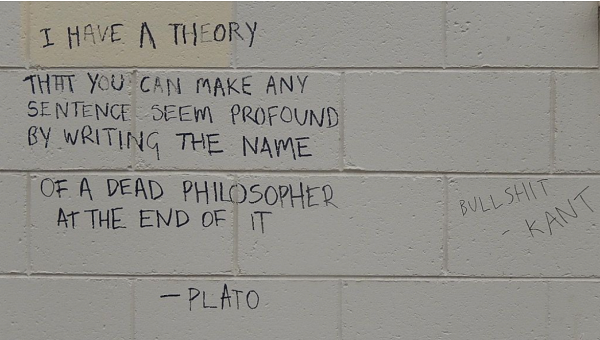 I HAVE A THEORY
THAT YOU CAN MAKE ANY
SENTENCE SEEM PROFOUND
BY WRITING THE NAME
OF A DEAD PHILOSOPHER
AT THE END OF IT
— PLATO
BULLSHIT
- KANT